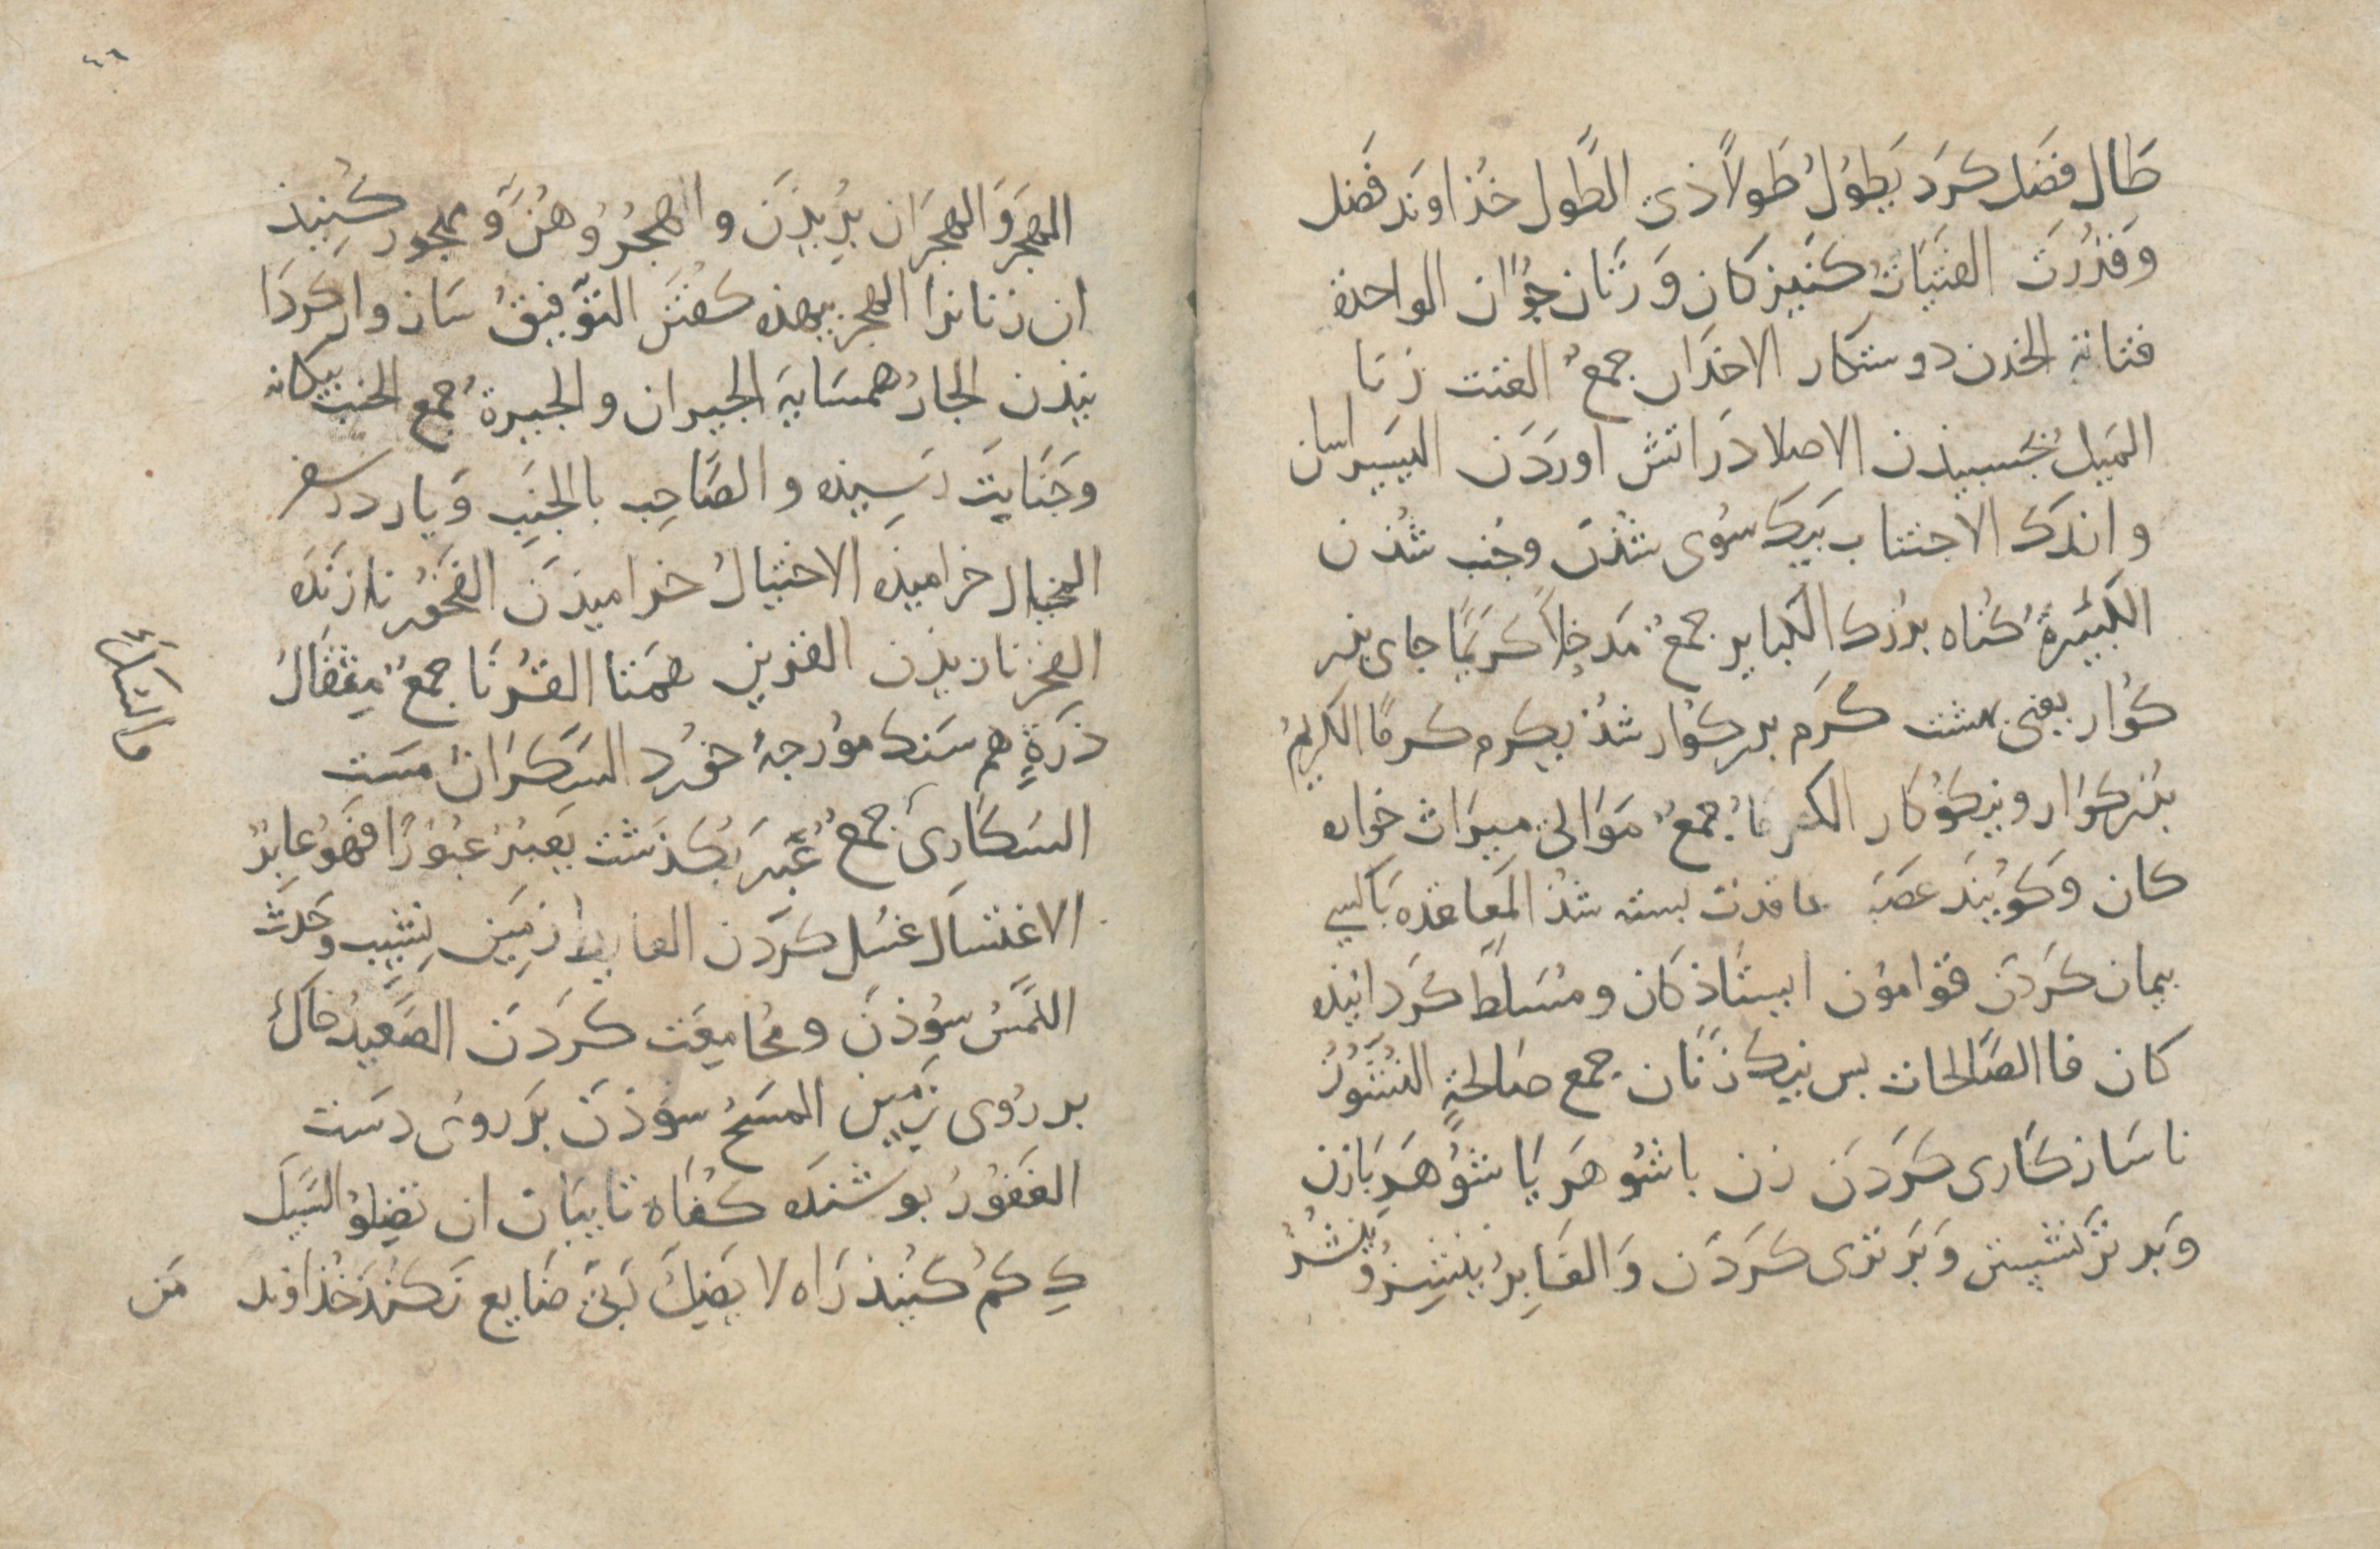 طَالَ فَضل كرَد يَطوُلُ طَولاً ذى الطَّول خُذاوَند فَضل
وَقدُرَت الفتَيَاتُ كنَيزكان وَ زنَان جوُان الواحدة
فتاتة الخدن دوستكار الاخدَان جمعٌ العنت زنا
الميَلُ بخسبيذن الاصلا دَر اتش اورَدَن اليَسير اسان
و اندَك الاجتناب بيَك سُوى شذَن وجُنب شُدن
الكَبيَرةُ كُناه بزُرك الكبَاير جمعٌ مَدخلاً كرَيمًا جاى بزر
كوُار يعنى بهشت كرَم بزركوُار شُذ يكرم كرمًا الكريمُ
بزُركوُار و نيكوُكار الكرمَاءُ جمعٌ مَوَالى ميرَاث خواره
كان وَكوُيندَ عصَبَة عاقدت بسته شذُ المَعاقده بَا كسى
بيمان كرَدَن قوامُون ايستاذكان و مُسَلَّط كرَدانيذه
كان فا الصَّالحات بس نيك زنَان جمع صَالحةٍ النُّشُوزُ
ناسَازكَارى كرَدَن زن باشوُهرَ يَا شوُهرَ بَازن
وَ بَر تَر نشيتن وَبَرترى كرَدَن وَ الغَابِرُ ينشِزُ وَينشُزُ
الهجَر وَ الهجرَان برُيذَن و اهجُرُوهُنَّ وَ مهجور كُنيذ
ان زنانرا الهجر بيهذه كفُتنَ التوَّفيقُ سَاز وار كرَدَا
نيذن الجارُ همسَايَة الجيران و الجيرةُ جمع الجنب بيكانه
وَجَنَايتَ رَسيِذه و الصَّاحِب بالجنَبِ وَ يار در سفر
المختال خراميذه الاختيالُ خراميذَن الفَخُور نازنَده
الفخَر نازيذن القرين همَتا القُرنَا جمعُ مِثقَالُ
ذرَةٍ هم سَنك مورجهٔ خوُرد السَّكرَانُ مسَت
السَكاَرىَ جمعٌ عَبَرَ بكُذَشت يَعبُرُ عبُوُرًا فَهوُ عاَبرٌ
الاغتسَال غسُل كرَدَن الغايط زمَين نِشيِب وَحَدَث
اللَّمَسُ سوُذَن و مُجَامِعَت كرَدَن الصَعيِدُ خَاك
بر رُوى زَميِن المسَحُ سوُذَن بَر روى دسَت
الغَفوُرُ بوشنَده كنُاه تايبان ان تضِلوُ السَّبيل
كِ كمُ كنُيذ رَاه لا يضِلُ رَبّىَ ضَايع نَكنُدَ خُذاوند مَن
ما السكارى
٤٦